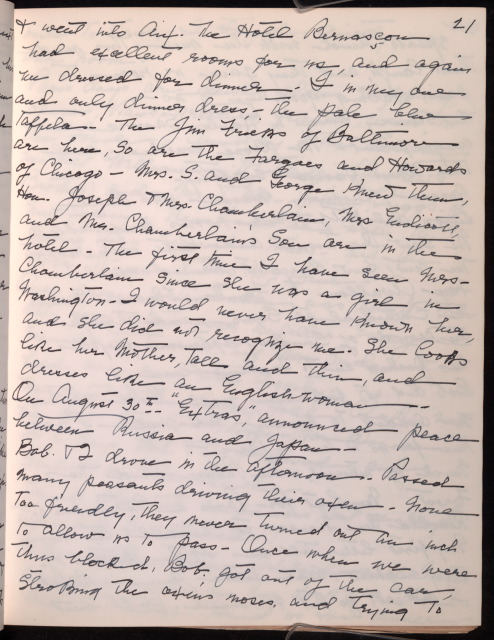 21
& went into Aix. The Hotel Bernascon
had excellent rooms for us, and again
we dressed for dinner - I in my one
and only dinner dress, - the pale blue
Taffeta - The Jim Fricks of Baltimore
are here, So are the Fargoes and Howards
of Chicago - Mrs. S. and George knew them,
Hon. Joseph & Mrs. Chamberlain, Mrs Endicott,
and Mr. Chamberlain's Son are in the
hotel - The first time I have seen Mrs-
Chamberlain Since She was a girl in
Washington - I would never have known her,
and She did not recognize me. She looks
like her Mother, Tall and thin, and
dresses like an Englishwoman -
On August 30th - "Extras," announced peace
between Russia and Japan -
Bob. & I drove in the afternoon - Passed
many peasants driving their oxen - None
Too friendly, they never turned out an inch
to allow us to pass - Once when we were
thus blocked, Bob. got out of the car,
Stroking the oxen's noses, and trying to